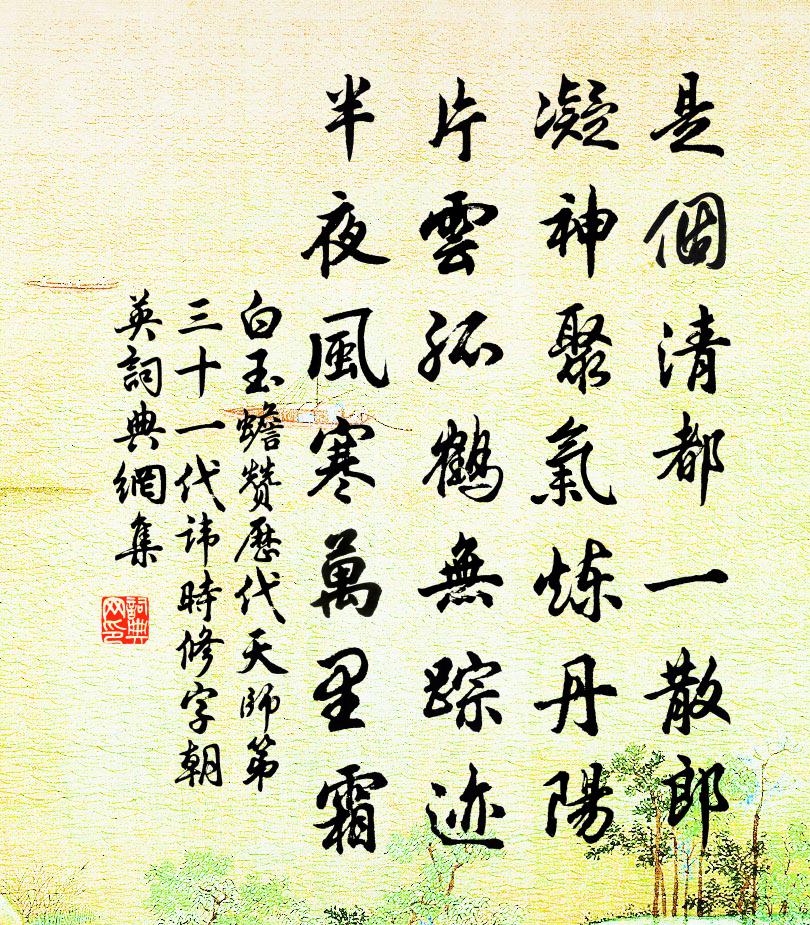 是個清都一散郎
凝神聚氣炼丹陽
片雲孤鶴無踪迹
半夜風寒萬里霜
白玉蟾赞歷代天師第
三十一代讳時修字朝
英詞典網集
詞典网印